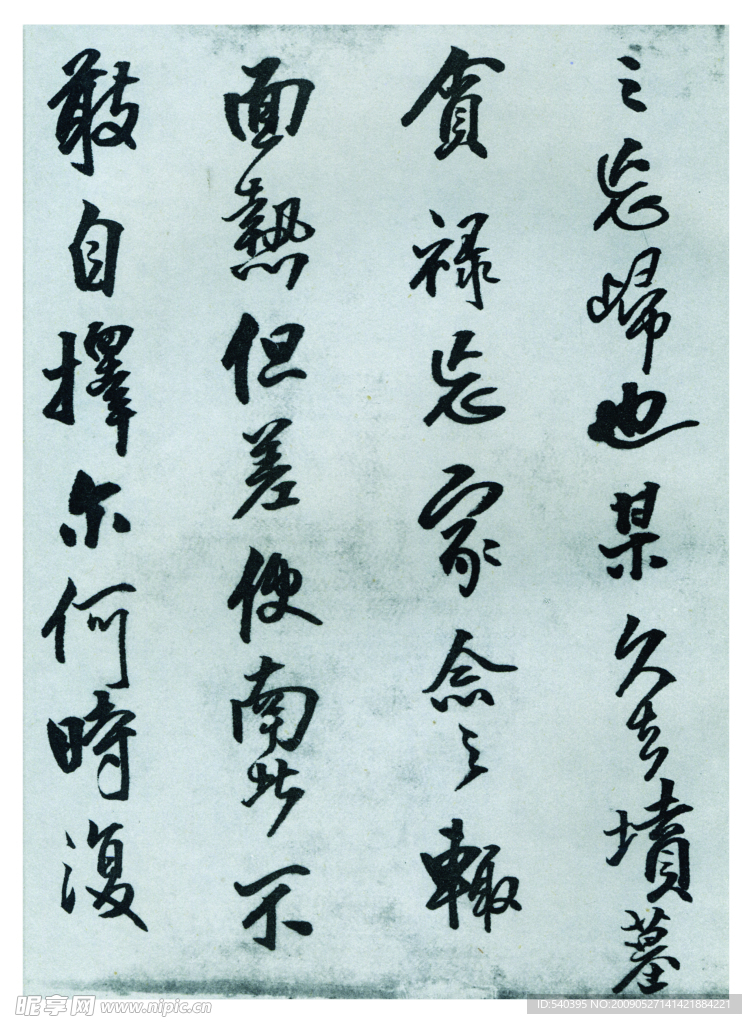 之忘歸也某久去墳墓
貪祿忘家念之輒
面熱但差使南北不
敢自擇尓何時復
昵享网 www.nipic.cn
ID:540395 NO:20090527141421884221